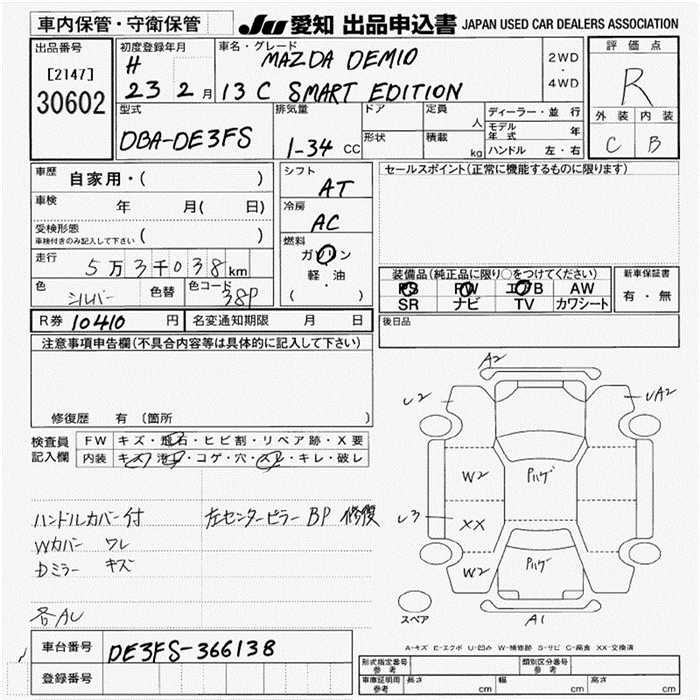 車内保管・守衛保管
JU 愛知 出品申込書 JAPAN USED CAR DEALERS ASSOCIATION
出品番号
[2147]
30602
初度登録年月
H
23 2 月
車名・グレード
MAZDA DEMIO
13 C SMART EDITION
2WD
・
4WD
評価点
R
外装 内装
C B
型式
DBA-DE3FS
排気量
1-34 CC
ドア
形状
定員
人
積載
kg
ディーラー・並行
モデル年式 年
ハンドル 左・右
車歴
自家用・( )
車検
年 月( 日)
受検形態
車検付きのみ記入して下さい ( )
走行
5万3千038km
色
シルバー
色替
色コード
38P
シフト
AT
冷房
AC
燃料
ガソリン
・
軽油
( )
セールスポイント(正常に機能するものに限ります)
装備品(純正品に限り○をつけてください)
PS PW エアB AW
SR ナビ TV カワシート
新車保証書
有・無
R券 10410 円
名変通知期限 月 日
後日品
注意事項申告欄(不具合内容等は具体的に記入して下さい)
修復歴 有 〔箇所 〕
検査員
記入欄
FW キズ・飛石・ヒビ割・リペア跡・X要
内装 キズ・コゲ・穴・キレ・破レ
ハンドルカバー付 左センターピラー BP 修復
Wカバー ワレ
Dミラー キズ
各AU
A2
U2
UA2
W2
Pハゲ
U3
XX
W2
Pハゲ
A1
スペア
A-キズ E-エクボ U-凹み W-補修跡 S-サビ C-腐食 XX-交換済
車台番号
DE3FS-366138
登録番号
形式指定番号
参考
類別区分番号
参考
車庫証明用
参考
長さ cm
幅 cm
高さ cm